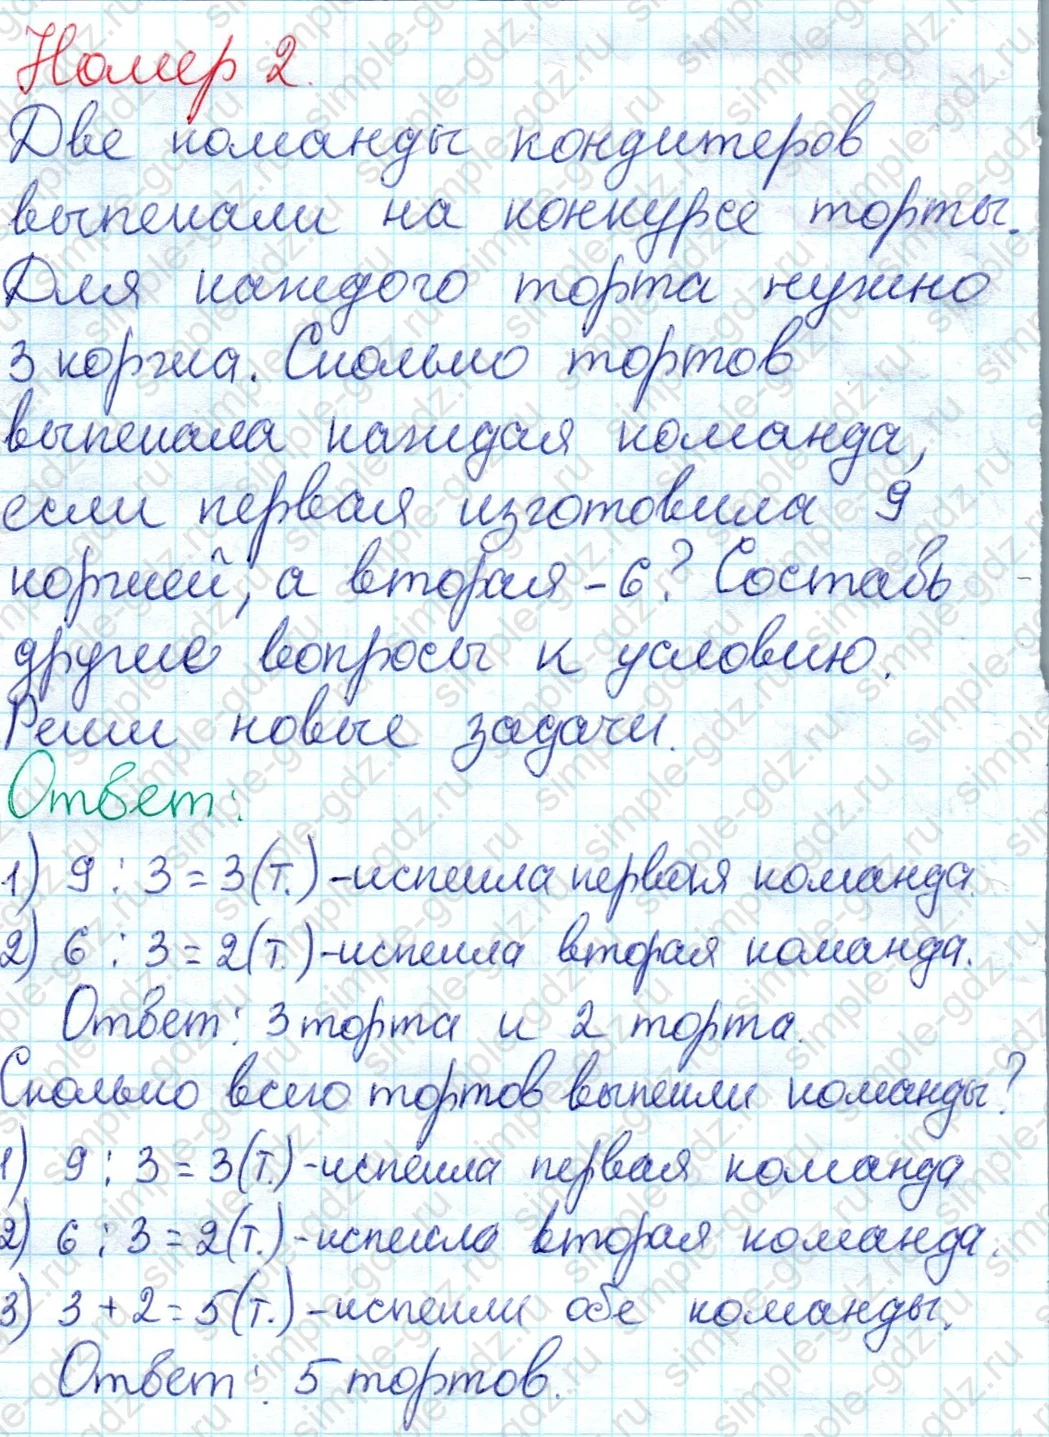 Номер 2.
Две команды кондитеров
выпекали на конкурсе торты.
Для каждого торта нужно
3 коржа. Сколько тортов
выпекала каждая команда,
если первая изготовила 9
коржей, а вторая - 6? Составь
другие вопросы к условию.
Реши новые задачи.
Ответ:
1) 9 : 3 = 3 (т.) - испекла первая команда.
2) 6 : 3 = 2 (т.) - испекла вторая команда.
Ответ: 3 торта и 2 торта.
Сколько всего тортов выпекли команды?
1) 9 : 3 = 3 (т.) - испекла первая команда
2) 6 : 3 = 2 (т.) - испекла вторая команда.
3) 3 + 2 = 5 (т.) - испекли обе команды.
Ответ: 5 тортов.
simple-gdz.ru